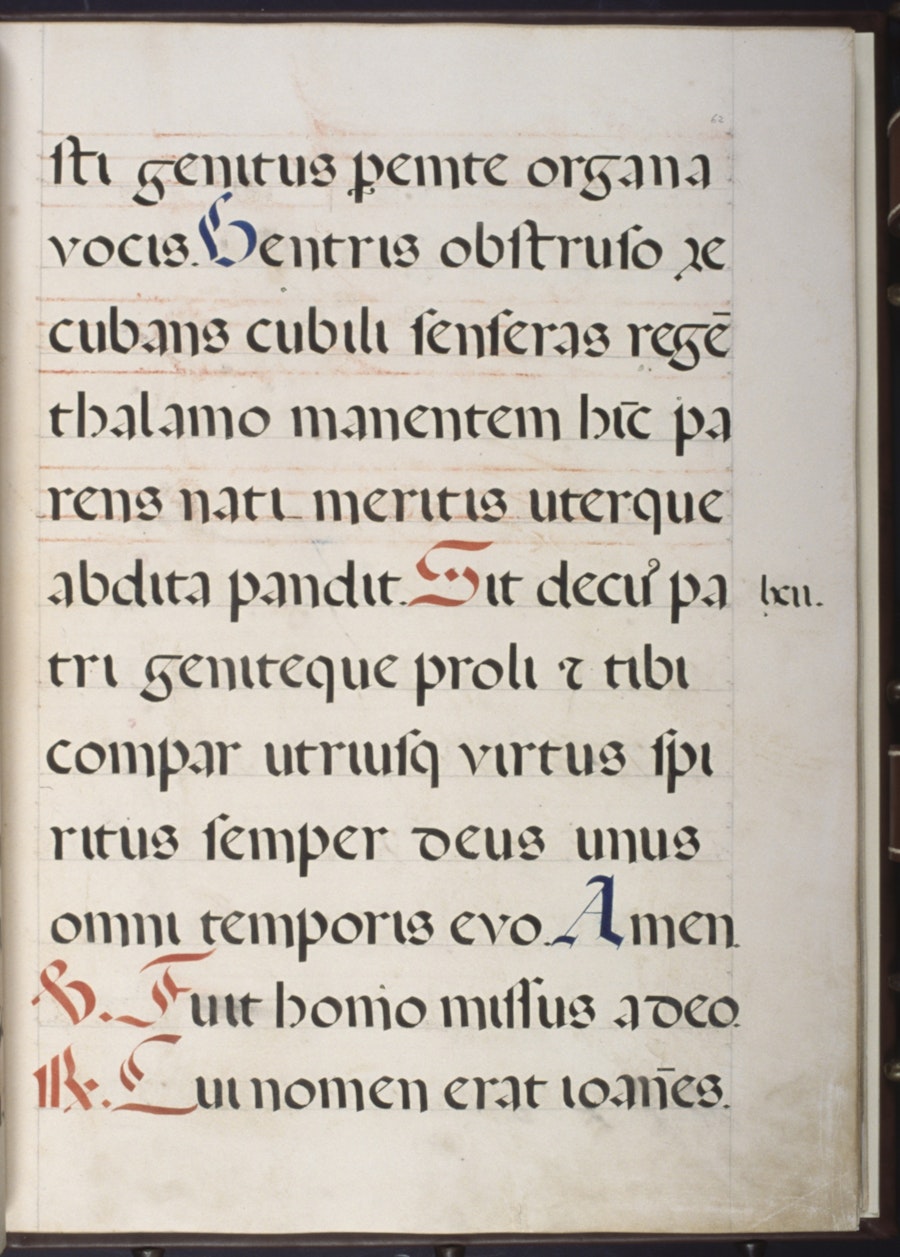 62
sti genitus pemte organa
vocis. Ventris obstruso re
cubans cubili senseras regē
thalamo manentem hīc pa
rens nati meritis uterque
abdita pandit. Sit decus pa
lxii.
tri geniteque proli ⁊ tibi
compar utriusq virtus spi
ritus semper deus unus
omni temporis evo. Amen.
℣. Fuit homo missus a deo.
℟. Cui nomen erat ioan̄es.